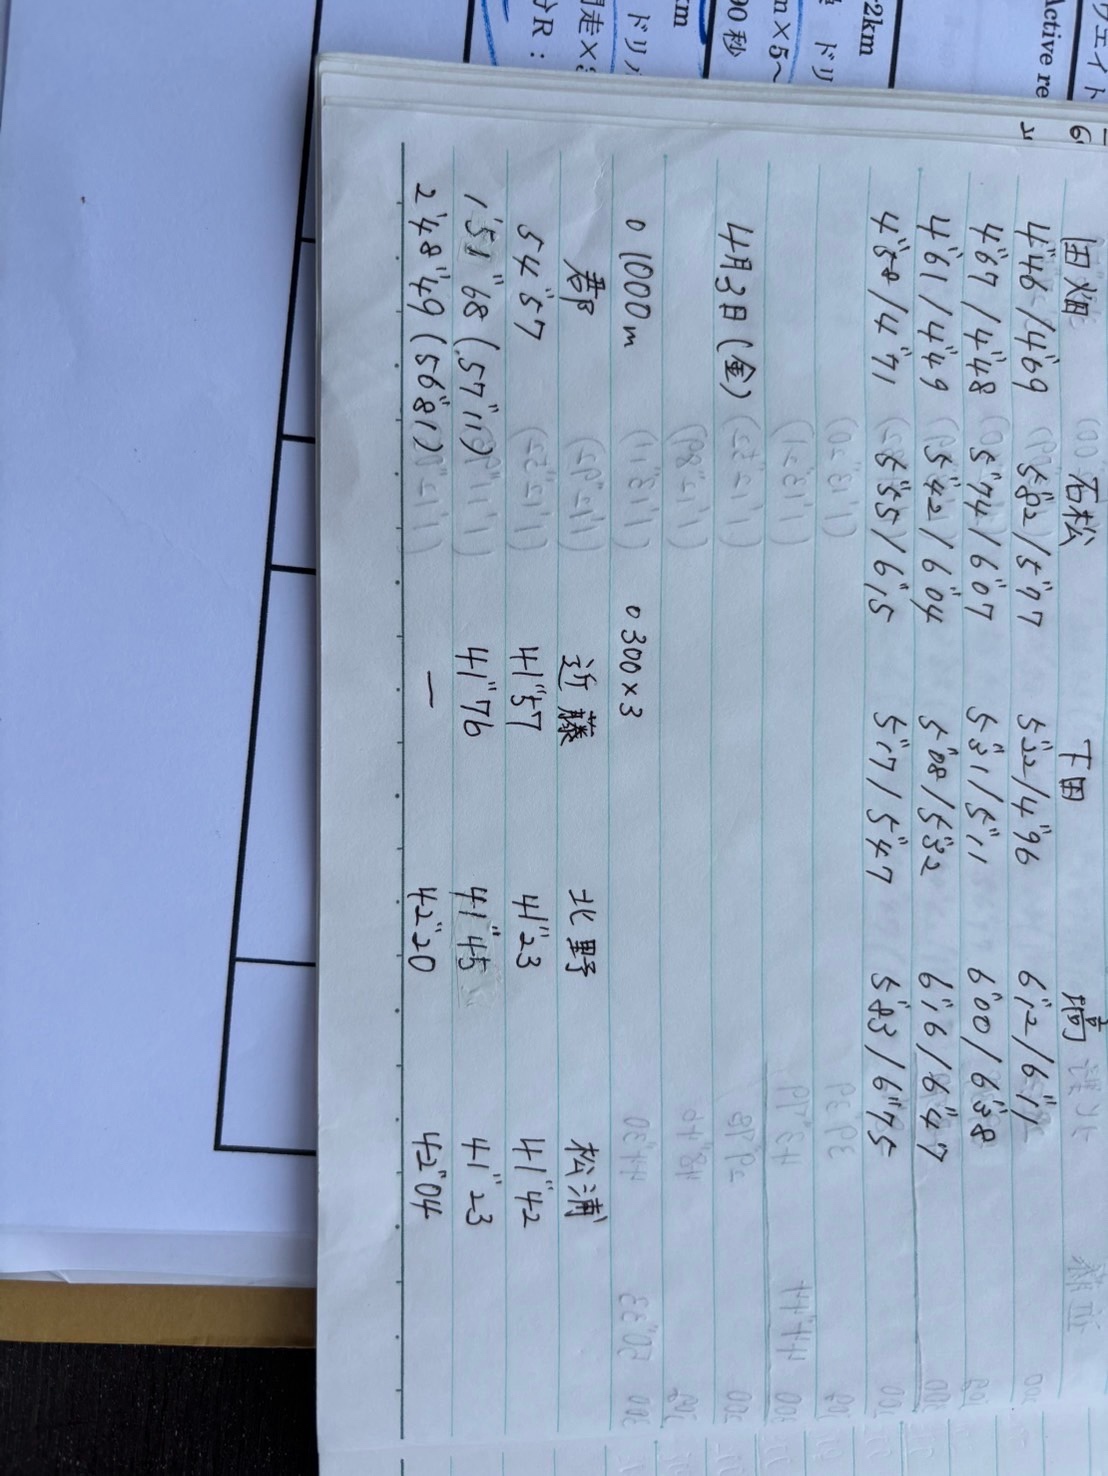 ウエイト
Active re
2km
ドリ
m×5~
90秒
km
ドリ
田畑 石松 下田
4"46/4"69 5"82/5"77 5"32/4"96 6"12/6"11
4"67/4"48 5"74/6"07 5"31/5"11 6"00/6"38
4"61/4"49 5"42/6"04 5"08/5"32 6"16/6"47
4"58/4"71 6"55/6"15 5"17/5"47 5"83/6"75
4月3日(金)
○1000m ○300×3
郡 近藤 北野 松浦
54"57 41"57 41"23 41"42
1'51"68(57"11) 41"76 41"45 41"23
2'48"49(56"81) ー 42"20 42"04